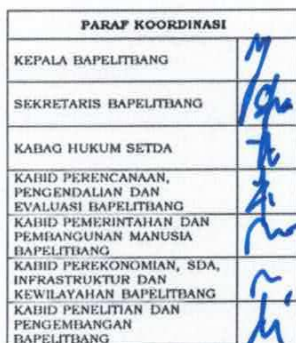 PARAF KOORDINASI
KEPALA BAPELITBANG
SEKRETARIS BAPELITBANG
KABAG HUKUM SETDA
KABID PERENCANAAN,
PENGENDALIAN DAN
EVALUASI BAPELITBANG
KABID PEMERINTAHAN DAN
PEMBANGUNAN MANUSIA
BAPELITBANG
KABID PEREKONOMIAN, SDA,
INFRASTRUKTUR DAN
KEWILAYAHAN BAPELITBANG
KABID PENELITIAN DAN
PENGEMBANGAN
BAPELITBANG